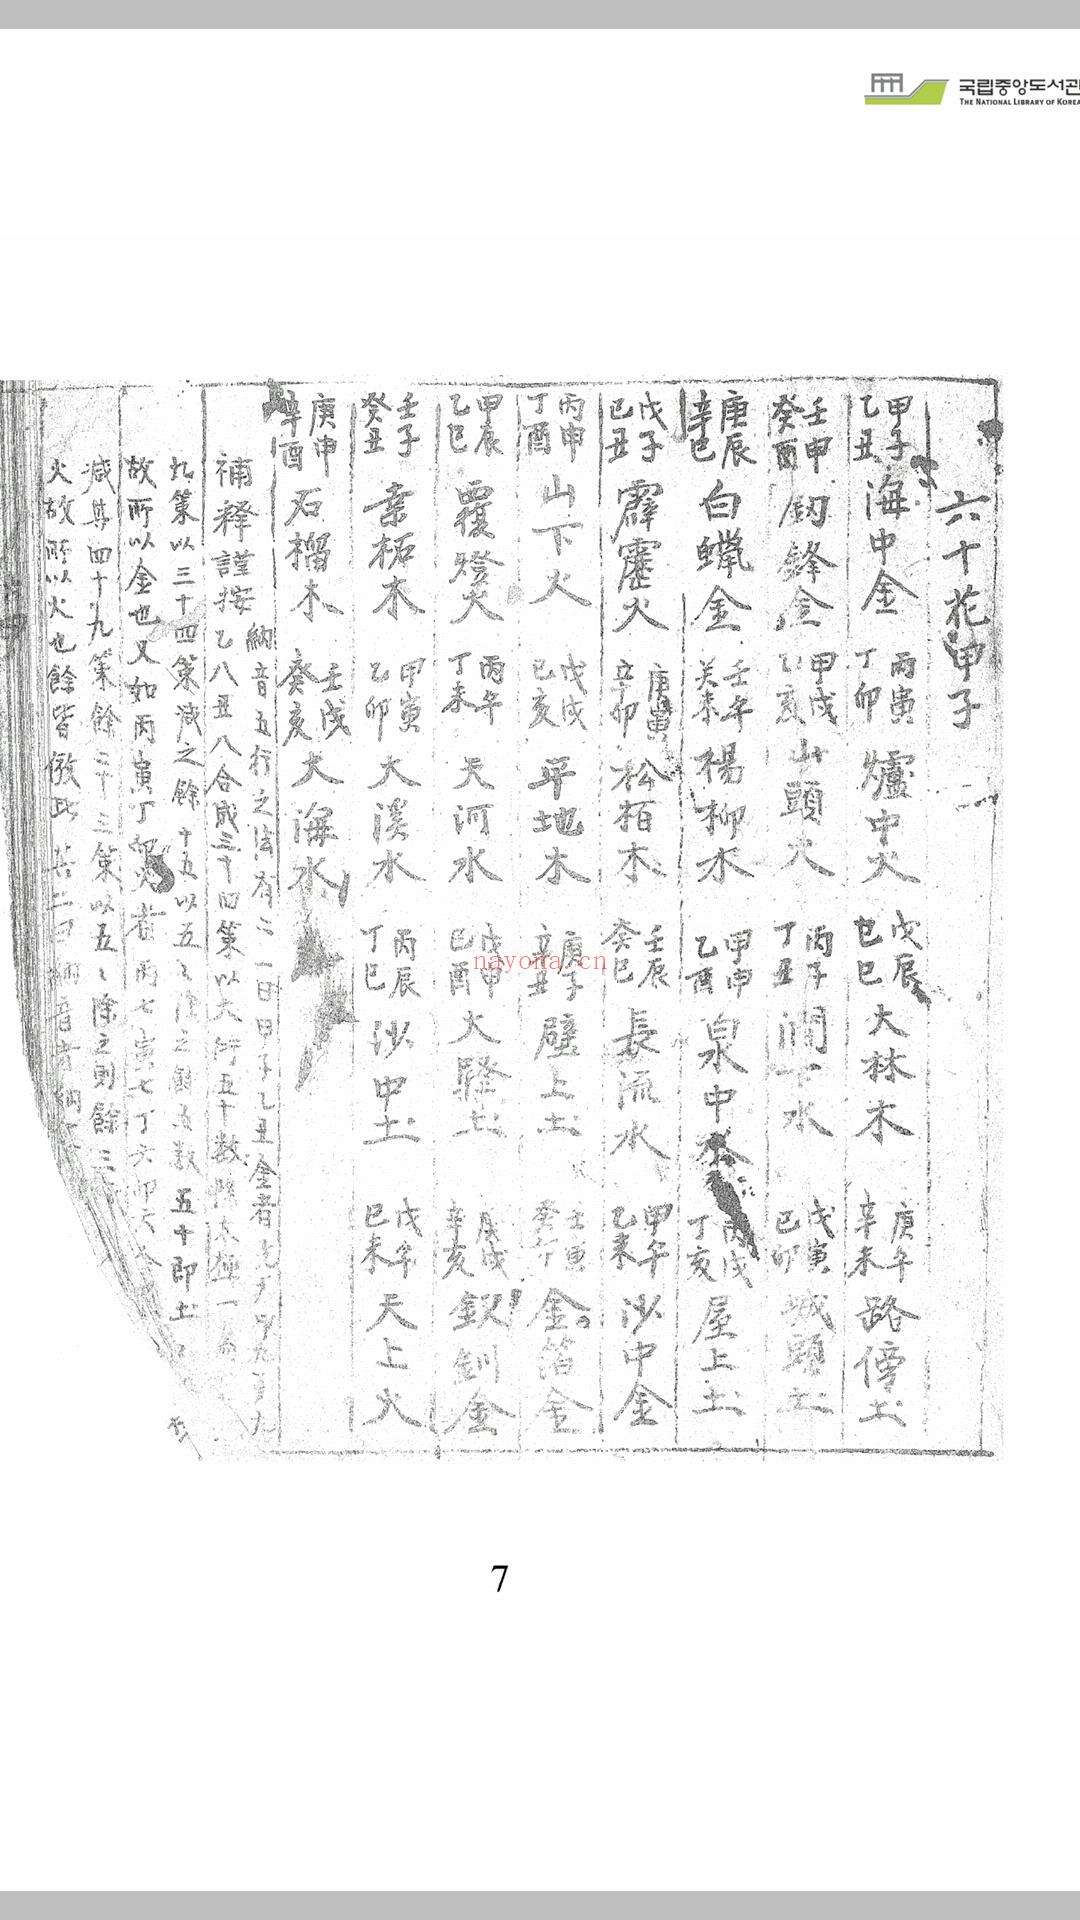 국립중앙도서관
THE NATIONAL LIBRARY OF KOREA
六十花甲子
甲子乙丑海中金 丙寅丁卯爐中火 戊辰己巳大林木 庚午辛未路傍土
壬申癸酉釼鋒金 甲戌乙亥山頭火 丙子丁丑澗下水 戊寅己卯城頭土
庚辰辛巳白蠟金 壬午癸未楊柳木 甲申乙酉泉中水 丙戌丁亥屋上土
戊子己丑霹靂火 庚寅辛卯松栢木 壬辰癸巳長流水 甲午乙未沙中金
丙申丁酉山下火 戊戌己亥平地木 庚子辛丑壁上土 壬寅癸卯金箔金
甲辰乙巳覆燈火 丙午丁未天河水 戊申己酉大驛土 庚戌辛亥釵釧金
壬子癸丑桑柘木 甲寅乙卯大溪水 丙辰丁巳沙中土 戊午己未天上火
庚申辛酉石榴木 壬戌癸亥大海水
補釋謹按納音五行之法有二一曰甲子乙丑金者先甲九子九
乙八丑八合成三十四策以大衍五十數除太極一
九策以三十四策減之餘十五以五〻除之餘五數五十卽土
故所以金也又如丙寅丁卯火者丙七寅七丁六卯六
減其四十九策餘二十三策以五〻除之則餘三
火故所以火也餘皆倣此其二曰納音者納
nayona.cn
7